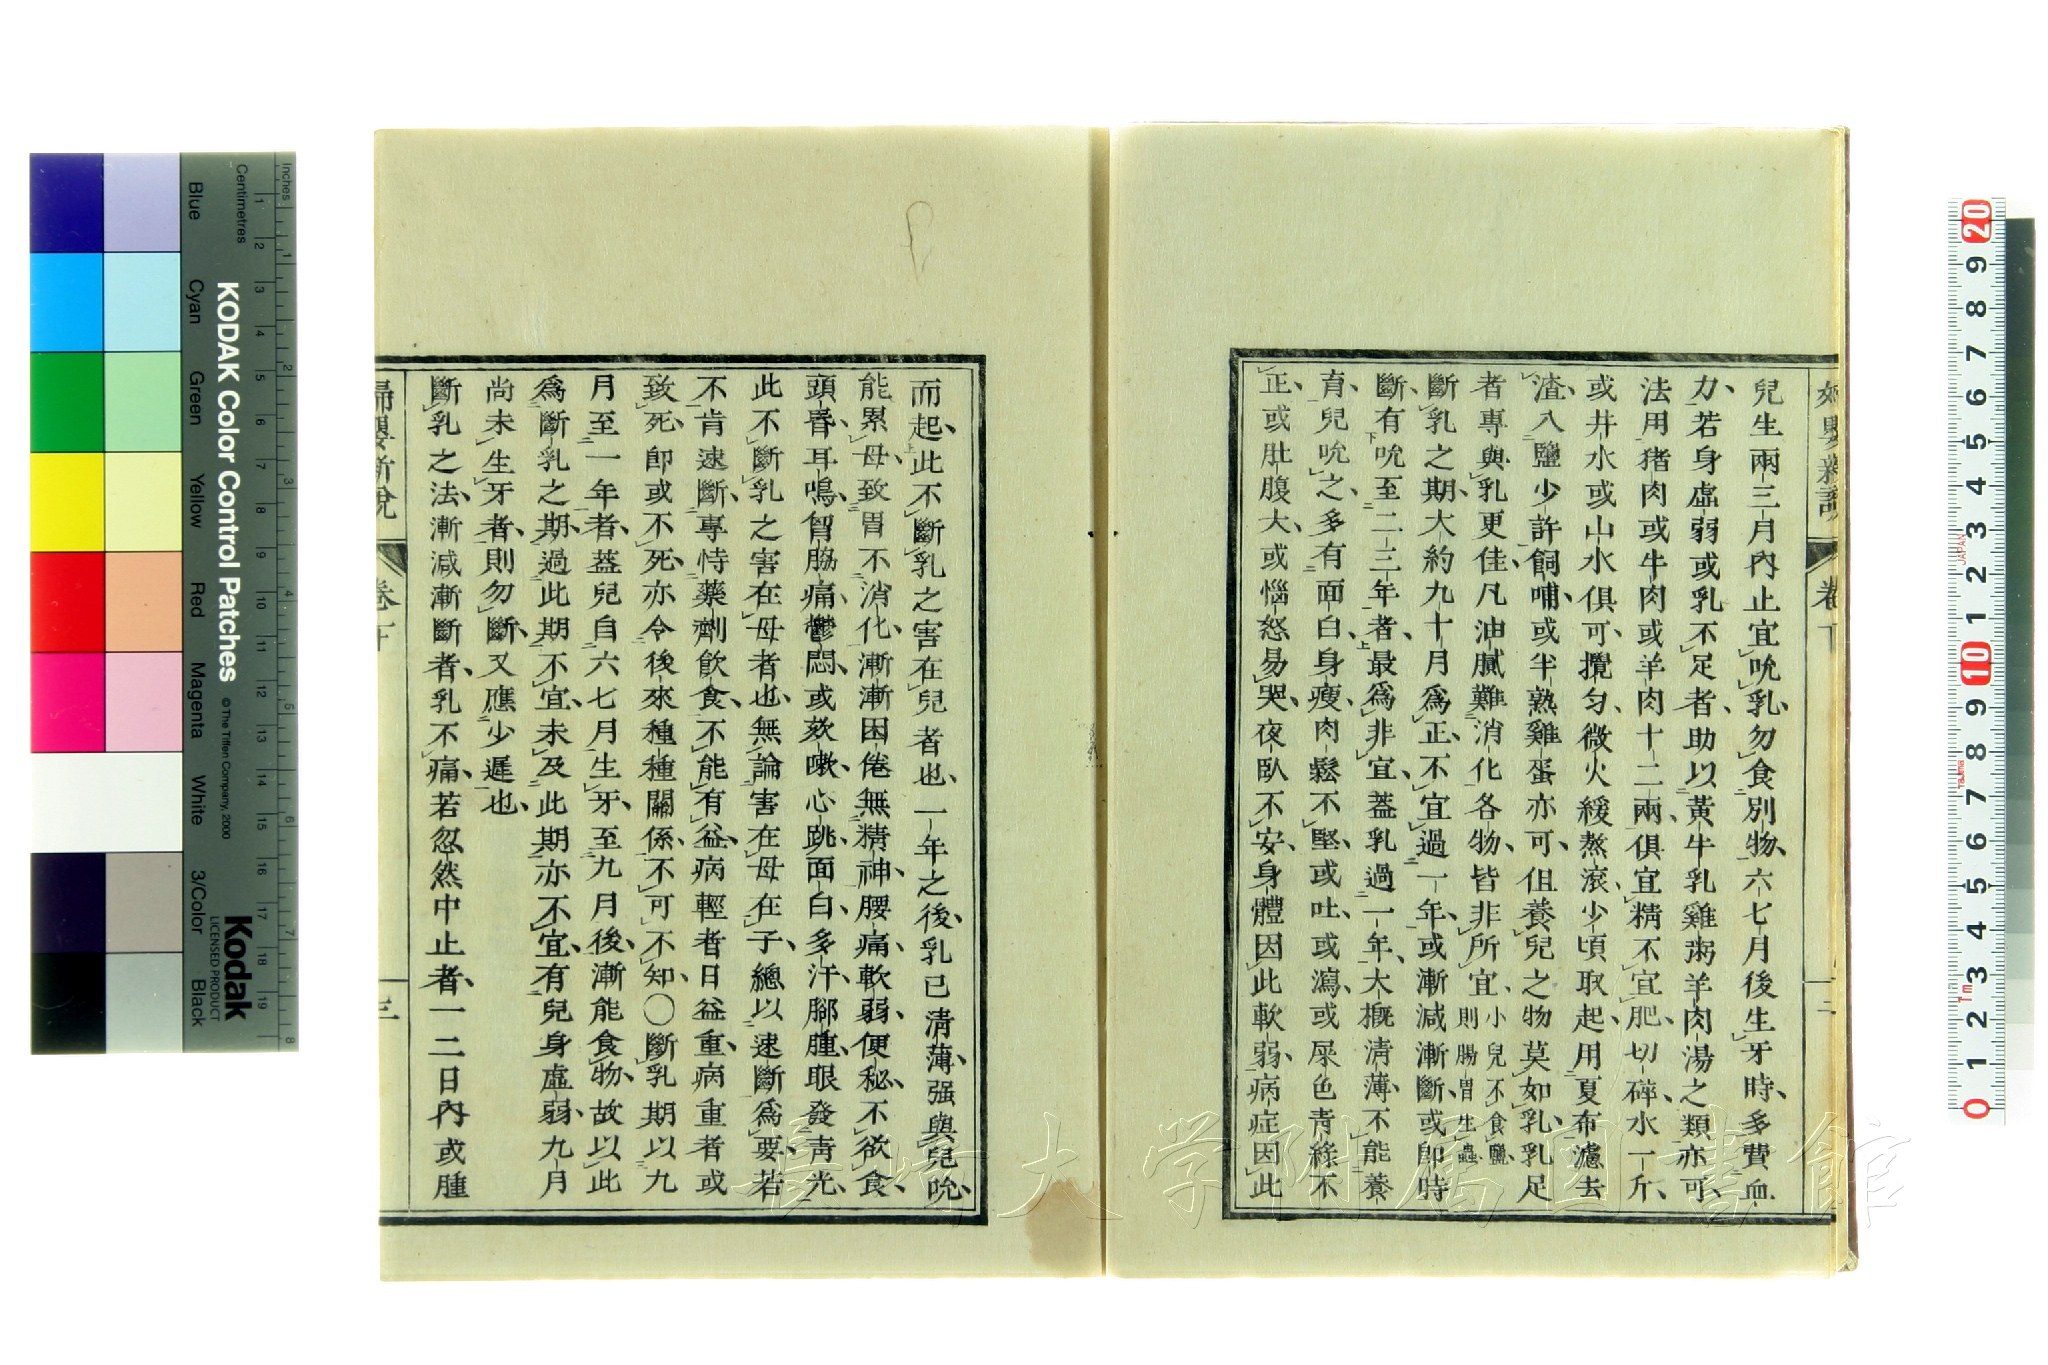 婦嬰新説 卷下 二
兒生兩三月內止宜吮乳、勿食別物、六七月後生牙時、多費血
力、若身虛弱或乳不足者、助以黃牛乳雞粥羊肉湯之類亦可、
法用猪肉或牛肉或羊肉十二兩、俱宜精不宜肥、切碎水一斤、
或井水或山水俱可、攪匀、微火緩熬滾少頃取起、用夏布濾去
渣、入鹽少許飼哺、或半熟雞蛋亦可、但養兒之物莫如乳、乳足
者專與乳更佳、凡油膩難消化各物、皆非所宜、小兒不食鹽、則腸胃生蟲
斷乳之期、大約九十月爲正、不宜過一年、或漸減漸斷、或卽時
斷、有吮至二三年者、最爲非宜、蓋乳過一年、大概清薄、不能養
育、兒吮之、多有面白身瘦肉鬆不堅、或吐、或瀉、或屎色青綠不
正、或肚腹大、或惱怒易哭、夜臥不安、身體因此軟弱、病症因此
而起、此不斷乳之害在兒者也、一年之後、乳已清薄、强與兒吮、
能累母致胃不消化、漸漸困倦無精神、腰痛軟弱、便秘、不欲食、
頭昏、耳鳴、胷脇痛、鬱悶、或欬嗽、心跳、面白、多汗、腳腫、眼發青光、
此不斷乳之害在母者也、無論害在母在子、總以速斷爲要、若
不肯速斷、專恃藥劑飲食、不能有益、病輕者日益重、病重者或
致死、卽或不死、亦令後來種種關係、不可不知、〇斷乳期以九
月至一年者、蓋兒自六七月生牙、至九月後、漸能食物、故以此
爲斷乳之期、過此期不宜、未及此期亦不宜、有兒身虛弱、九月
尚未生牙者、則勿斷、又應少遲也、
斷乳之法、漸減漸斷者、乳不痛、若忽然中止者、一二日內或腫
婦嬰新說 卷下 三
KODAK Color Control Patches
© The Tiffen Company, 2000
Kodak
LICENSED PRODUCT
Inches
Centimetres
Blue
Cyan
Green
Yellow
Red
Magenta
White
3/Color
Black
長崎大学附属図書館